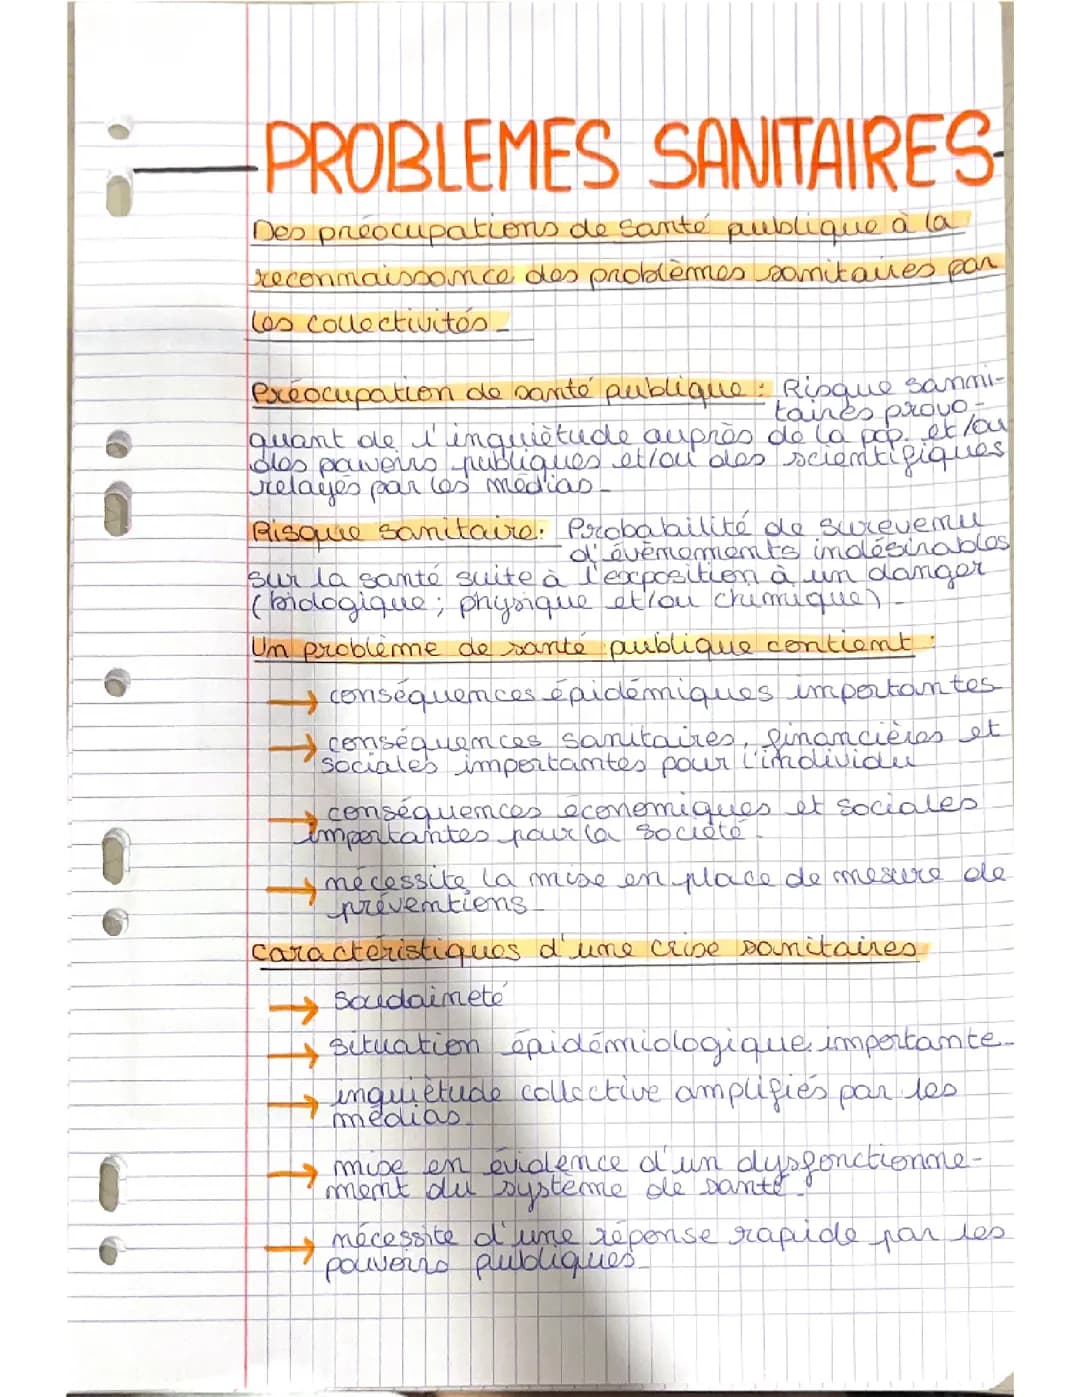 PROBLEMES SANITAIRES
Des préocupations de santé publique à la
reconnaissance des problèmes sanitaires par
les collectivités
Préocupation de santé publique : Risque sanni-
taires provo-
quant de l'inquiètude auprès de la pop. et/ou
des pouvoirs publiques et/ou des scientifiques
relayés par les médias
Risque sanitaire: Probabilité de surevenu
d'évènements indésirables
sur la santé suite à l'exposition à un danger
(biologique ; physique et/ou chimique)
Un problème de santé publique contient :
→ conséquences épidémiques importantes
→ conséquences sanitaires, financières et
sociales importantes pour l'individu
→ conséquences économiques et sociales
importantes pour la société
→ nécessite la mise en place de mesure de
préventions
Caractéristiques d'une crise sanitaires
→ Soudaineté
→ situation épidémiologique importante
→ inquiètude collective amplifiés par les
médias
→ mise en évidence d'un dysfonctionne-
ment du système de santé
→ nécessite d'une réponse rapide par les
pouvoirs publiques